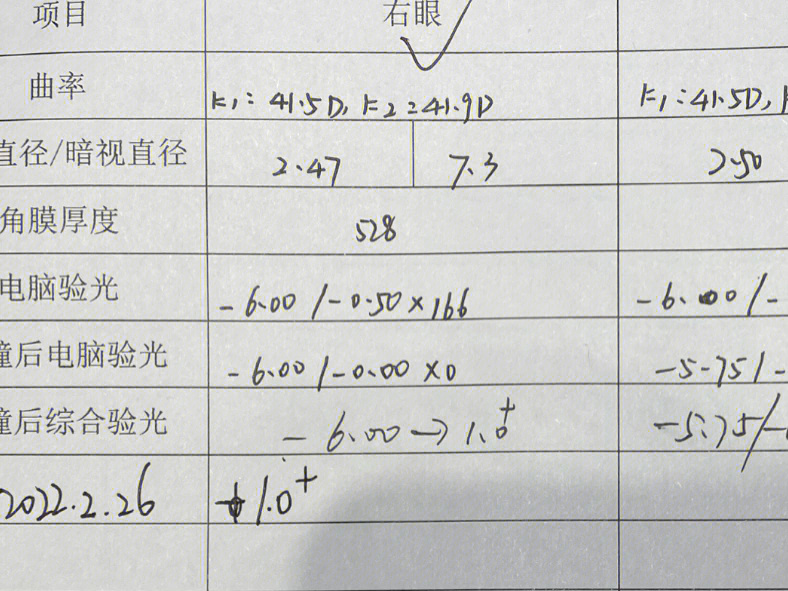 项目 右眼
曲率 K1:41.5D, K2:41.9D K1:41.5D,
直径/暗视直径 2.47 7.3 2.50
角膜厚度 528
电脑验光 -6.00/-0.50×166 -6.00/-
瞳后电脑验光 -6.00/-0.00×0 -5.75/-
瞳后综合验光 -6.00→1.0+ -5.75/-
2022.2.26 1.0+